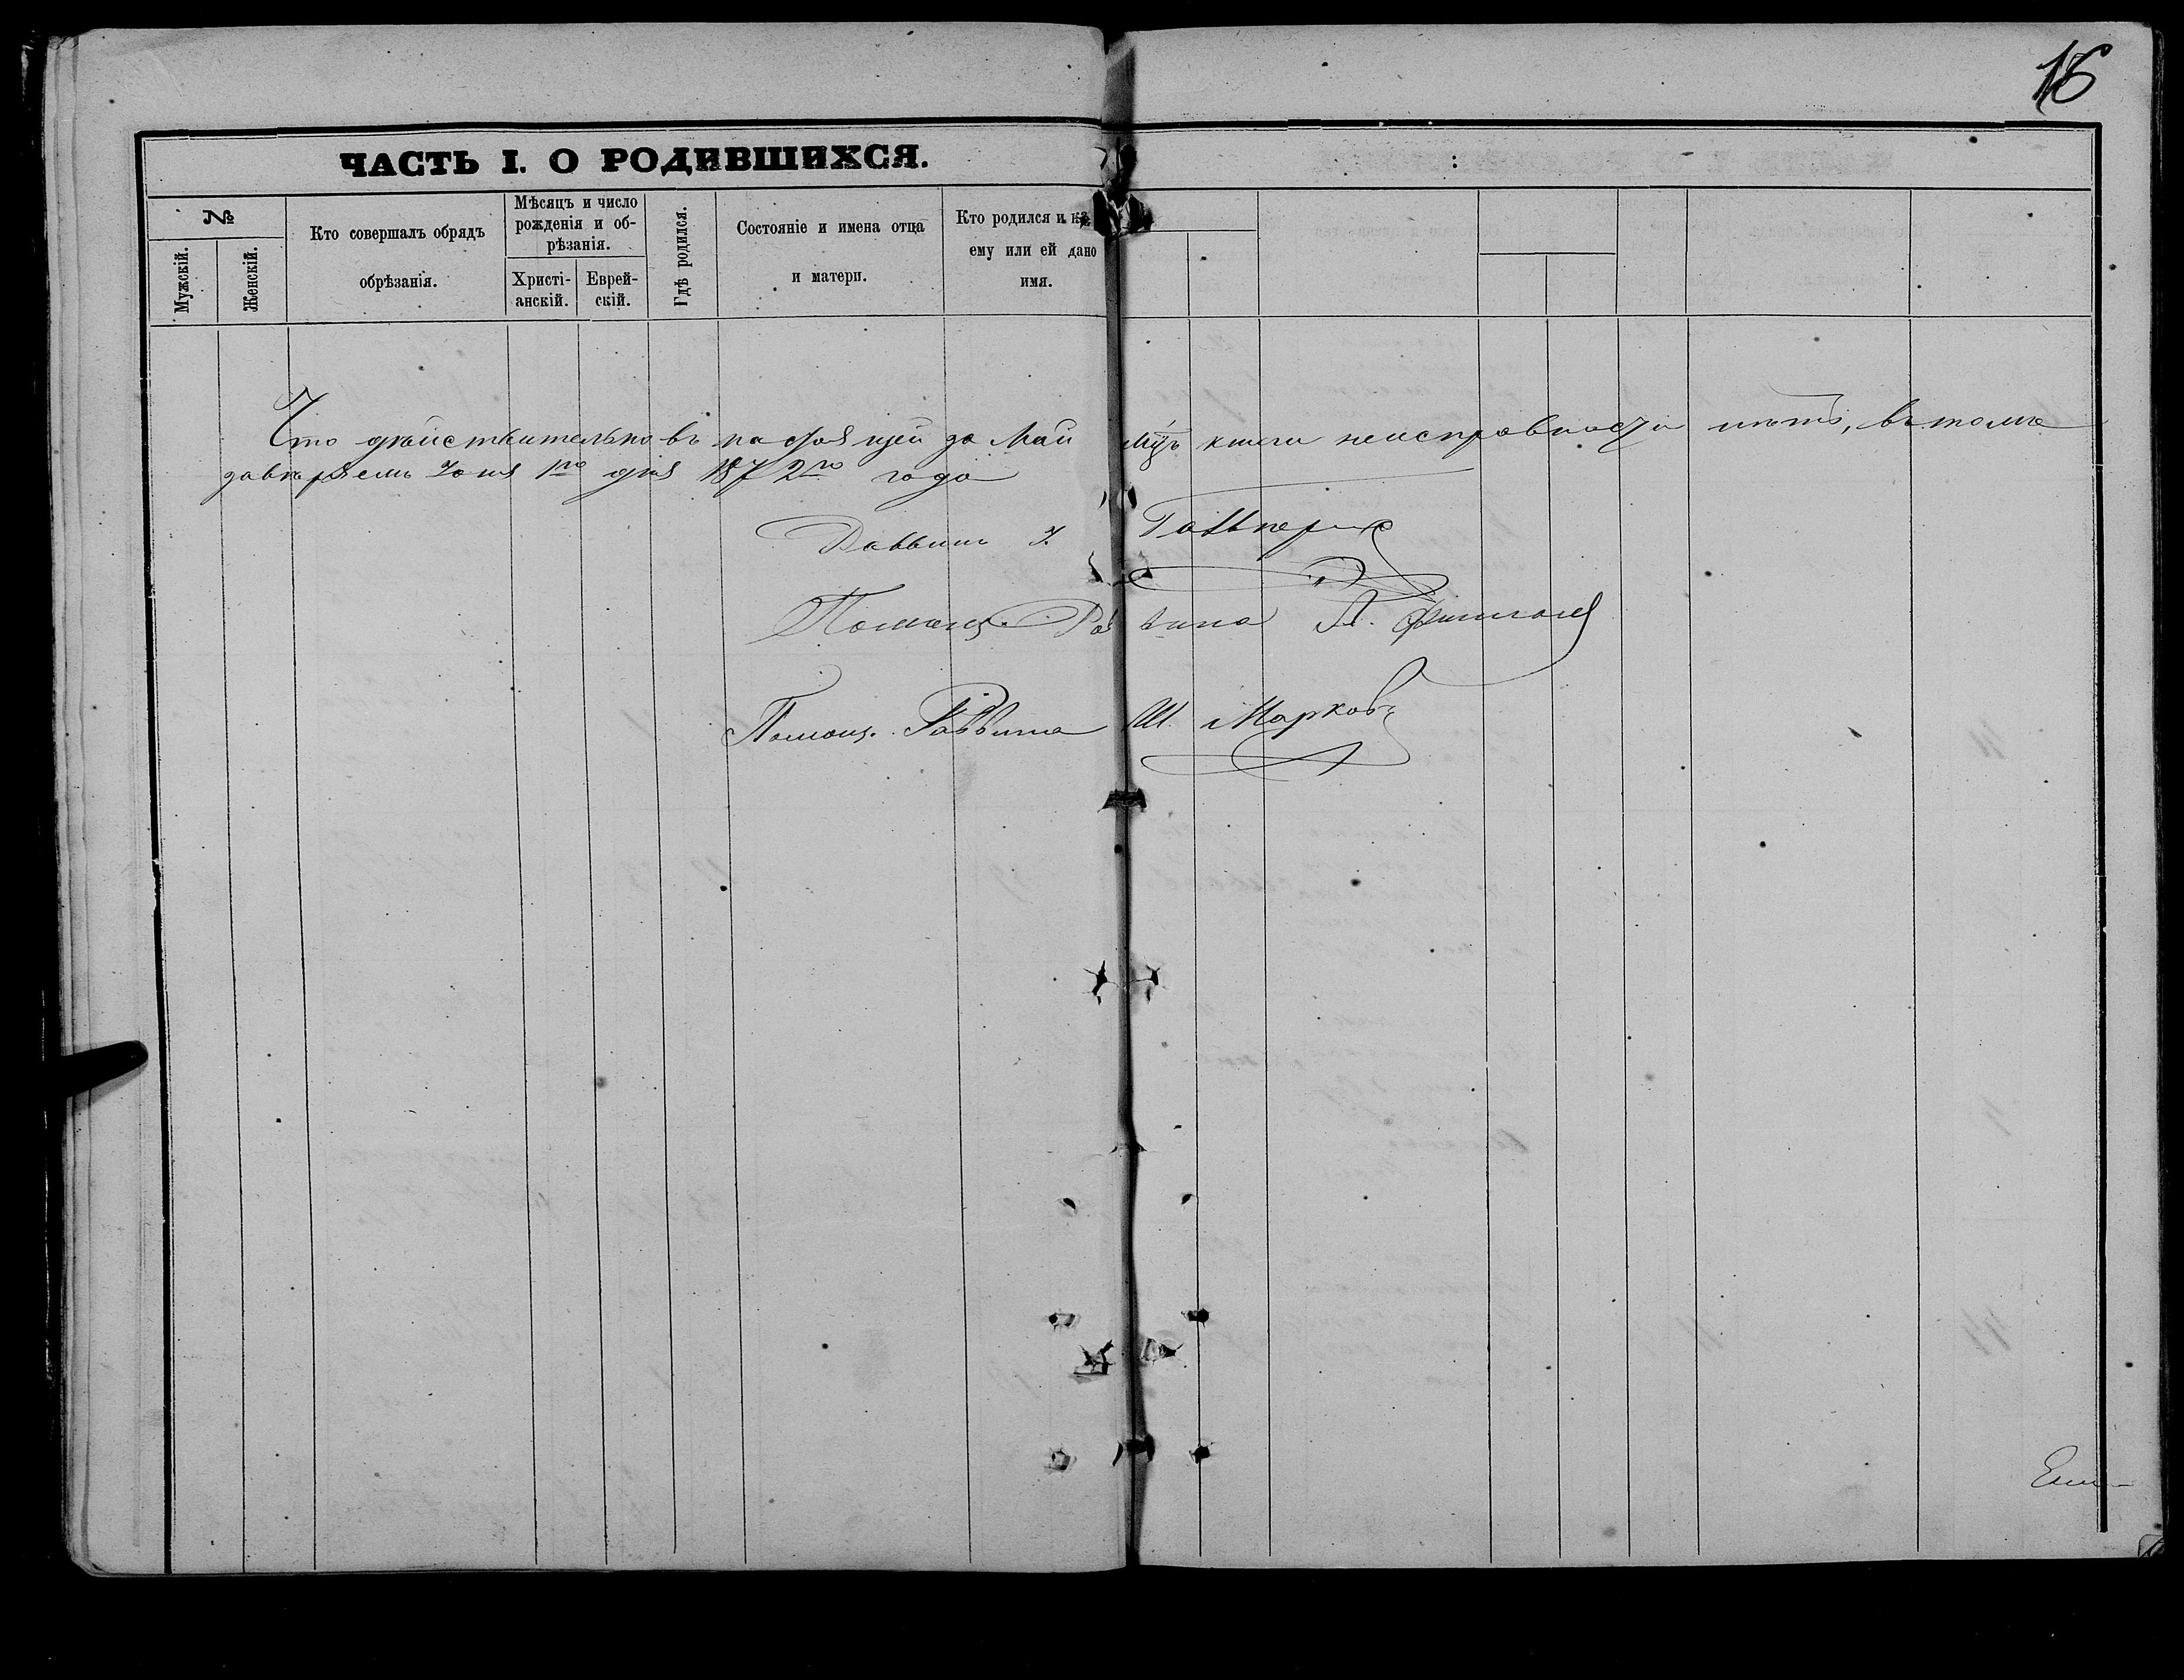 16
ЧАСТЬ I. О РОДИВШИХСЯ.
№
Мужскій.
Женскій.
Кто совершалъ обрядъ
обрѣзанія.
Мѣсяцъ и число
рожденія и об-
рѣзанія.
Христі-
анскій.
Еврей-
скій.
Гдѣ родился.
Состояніе и имена отца
и матери.
Кто родился и
ему или ей дано
имя.
Что дѣйствительно въ настоящей за Май мцъ книги неисправности нѣтъ, въ томъ
завѣряемъ Іюня 1го дня 1872го года
Раввинъ
Помощ. Раввина
Помощ. Раввина Ш. Марковъ